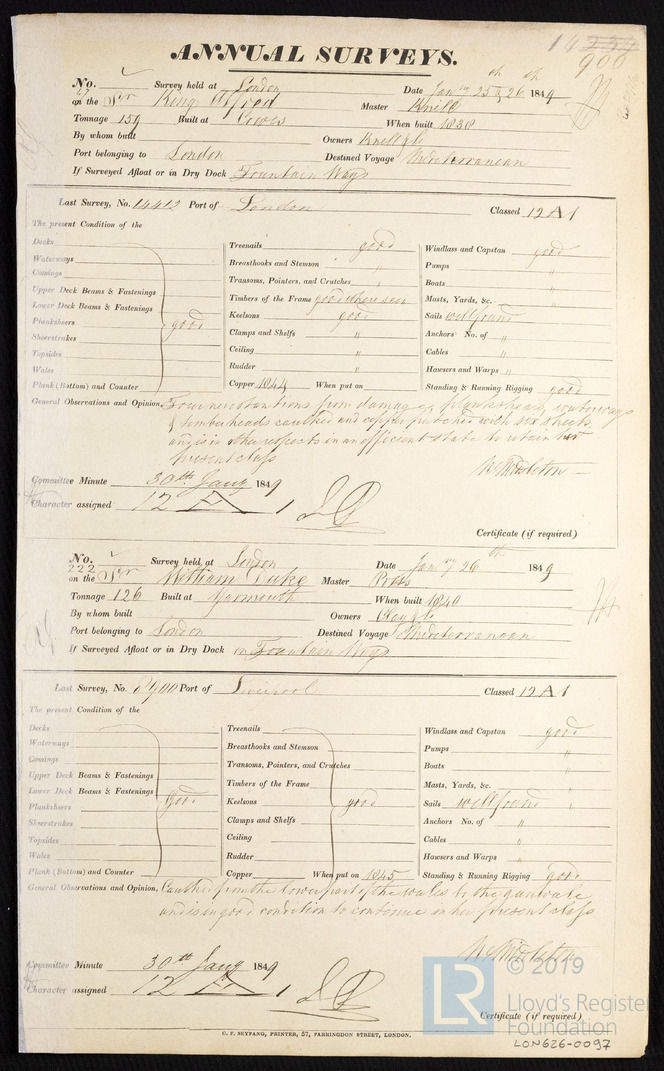 ANNUAL SURVEYS.
900
No. Survey held at London Date Jany 25th & 26th 1849
on the King Alfred Master Knill
Tonnage 159 Built at Cowes When built 1838
By whom built Owners Knill & Co
Port belonging to London Destined Voyage Mediterranean
If Surveyed Afloat or in Dry Dock Fountain Ways
Last Survey, No. 14412 Port of London Classed 12 A 1
The present Condition of the
Decks Treenails good Windlass and Capstan good
Waterways Breasthooks and Stemson " Pumps "
Comings Transoms, Pointers, and Crutches " Boats "
Upper Deck Beams & Fastenings Timbers of the Frame good where seen Masts, Yards, &c. "
Lower Deck Beams & Fastenings Keelsons good Sails well found
Planksheers good Clamps and Shelfs " Anchors No. of "
Sheerstrakes Ceiling " Cables "
Topsides Rudder " Hawsers and Warps "
Wales Copper 1844 When put on Standing & Running Rigging good
Plank (Bottom) and Counter
General Observations and Opinion, from damage, planksheers, waterways
& timberheads caulked and copper patched with six sheets
and is in other respects in an efficient state to retain her
present class
Committee Minute 30th Jany 1849
Character assigned 12 A 1
Certificate (if required)
No. 222 Survey held at London Date Jany 26th 1849
on the William Duke Master Ross
Tonnage 126 Built at Yarmouth When built 1840
By whom built Owners
Port belonging to London Destined Voyage Mediterranean
If Surveyed Afloat or in Dry Dock on Fountain Ways
Last Survey, No. 8900 Port of Liverpool Classed 12 A 1
The present Condition of the
Decks Treenails Windlass and Capstan good
Waterways Breasthooks and Stemson Pumps "
Comings Transoms, Pointers, and Crutches Boats "
Upper Deck Beams & Fastenings Timbers of the Frame Masts, Yards, &c. "
Lower Deck Beams & Fastenings good Keelsons good Sails well found
Planksheers Clamps and Shelfs Anchors No. of "
Sheerstrakes Ceiling Cables "
Topsides Rudder Hawsers and Warps "
Wales Copper When put on 1845 Standing & Running Rigging good
Plank (Bottom) and Counter
General Observations and Opinion, Caulked from the lower part of the wales to the gunwale
and is in good condition to continue in her present class
Committee Minute 30th Jany 1849
Character assigned 12 A 1
Certificate (if required)
C. F. SEYFANG, PRINTER, 57, FARRINGDON STREET, LONDON.
LR © 2019
Lloyd's Register
Foundation
LON626-0097